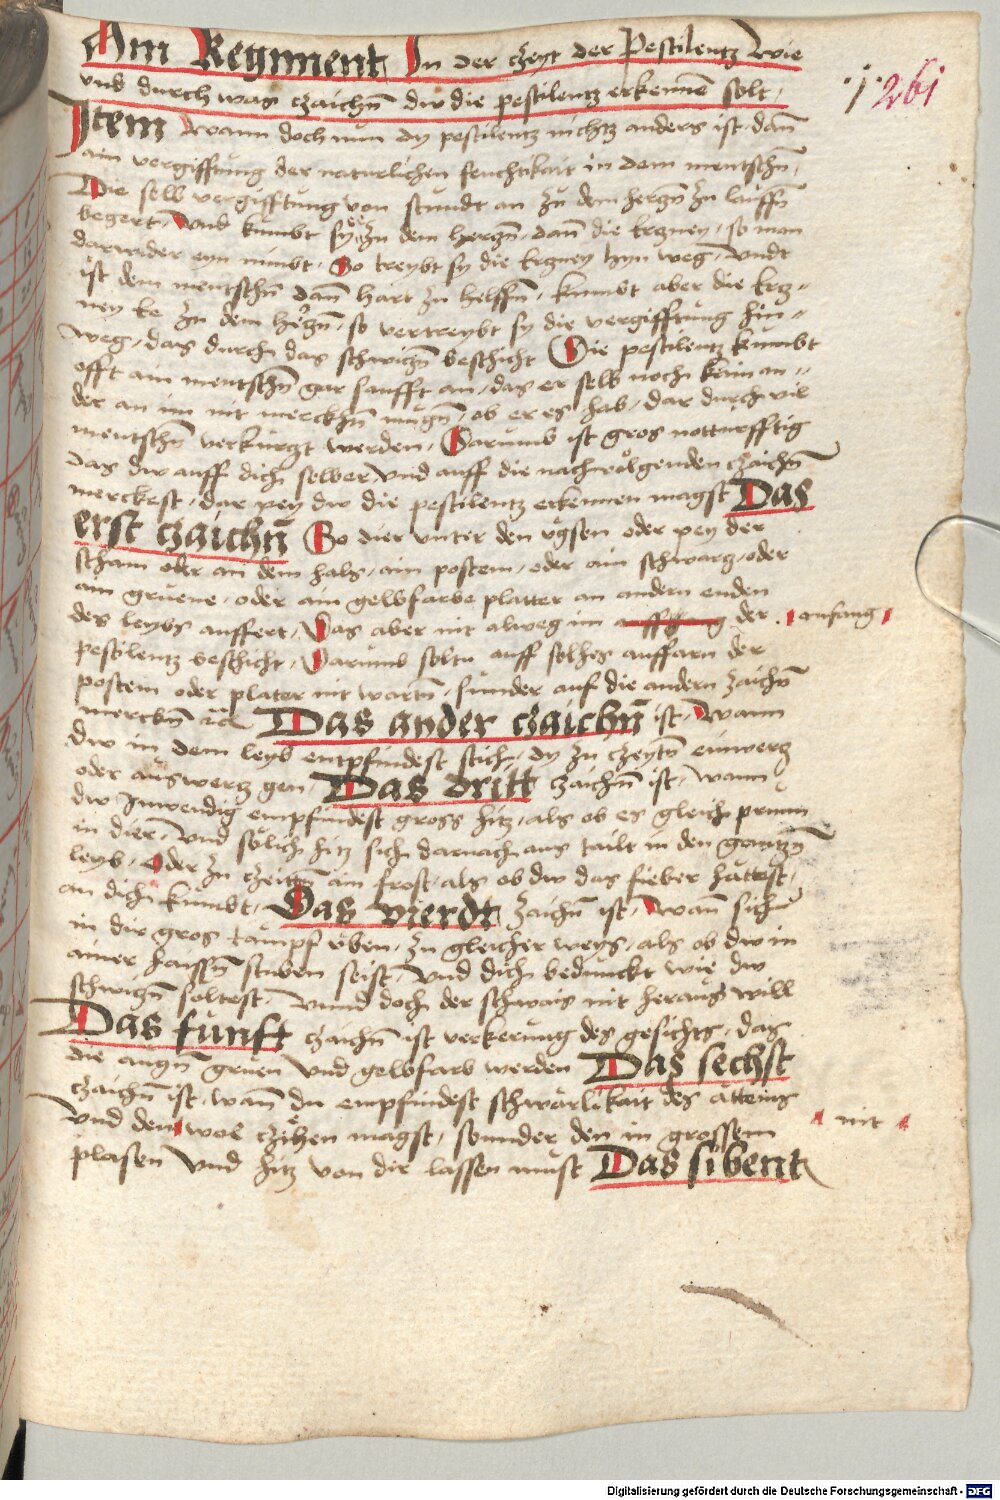 Ain Regiment In der czeyt der Pestilentz Wie
vnd durch was czaichñ dw die pestilentz erkennen solt.
.1. 261
Item Wann doch nun dy pestilentz nichtz anders ist. dañ
ain vergifftung der naturlichen feuchtikait in dem mentschñ,
Die selb vergifftung von stundt an zu dem herczñ zu lauffñ
begert. Und kumbt sy Ee zu dem herczñ, dañ die Erczney, so man
darwider eyn nimbt. So treybt sy die Erczney hyn weg, Vndt
ist dem mentschñ dañ hart zu helffñ, kumbt aber die Ercz-
ney Ee zu dem herczñ, so vertreybt sy die vergifftung hin-
weg, das durch das schwiczñ beschicht Die pestilentz kumbt
offt ain mentschñ gar sanfft an, das er selb noch kain an-
der an im nit merckhñ mugñ, ob er es hab, dar durch vil
mentschñ verkurczt werden, Darumb ist gros notturfftig
das dw auff dich selber, Vnd auff die nachuolgenden czaichñ
merckest, dar pey dw die pestilentz erkennen magst Das
erst czaichñ So dier vnter den vgsen oder pey der
scham oder an dem hals, ain postem, oder ain schwarcz, oder
ain gruene, oder ain gelbfarbe platter an andern enden
des leybs auffert, Das aber nit alweg im auffgang der
anfang
pestilentz beschicht, Darumb soltu auff solhes auffarn der
postem oder plater nit wartñ, sunder auf die andern zaichñ
merckñ Das ander czaichñ ist, Wann
dw in dem leyb entpfindest stich, dy zu czeytñ einwercz
oder auswercz gen, Das dritt czaichñ ist, Wann
dw Inwendig empfindest gross hitz, als ob es gleich prinn
in dier, Vnd solich hitz sich darnach aus tailt in den gantzñ
leyb, Oder zu czeittñ ain frost, als ob dw das fieber hattest,
an dich kumbt, Das vierdt zaichñ ist, Wañ sich
in dir gros tampf vben, zu gleicher weys, als ob dw in
ainer haissñ stuben seist, Vnd dich bedunckt wie dw
schwiczñ soltest, Vnnd doch der schwais nit heraus will
Das funft czaichñ ist verkerung des gesichts, das
die augñ gruen Vnd gelbfarb werden Das sechst
czaichñ ist, wañ du empfindest schwarlikait des attems
Vnd den wol cziehen magst, sounder den in grossem
nit
plasen Vnd hitz von dir lassen must Das sibent
Digitalisierung gefördert durch die Deutsche Forschungsgemeinschaft - DFG